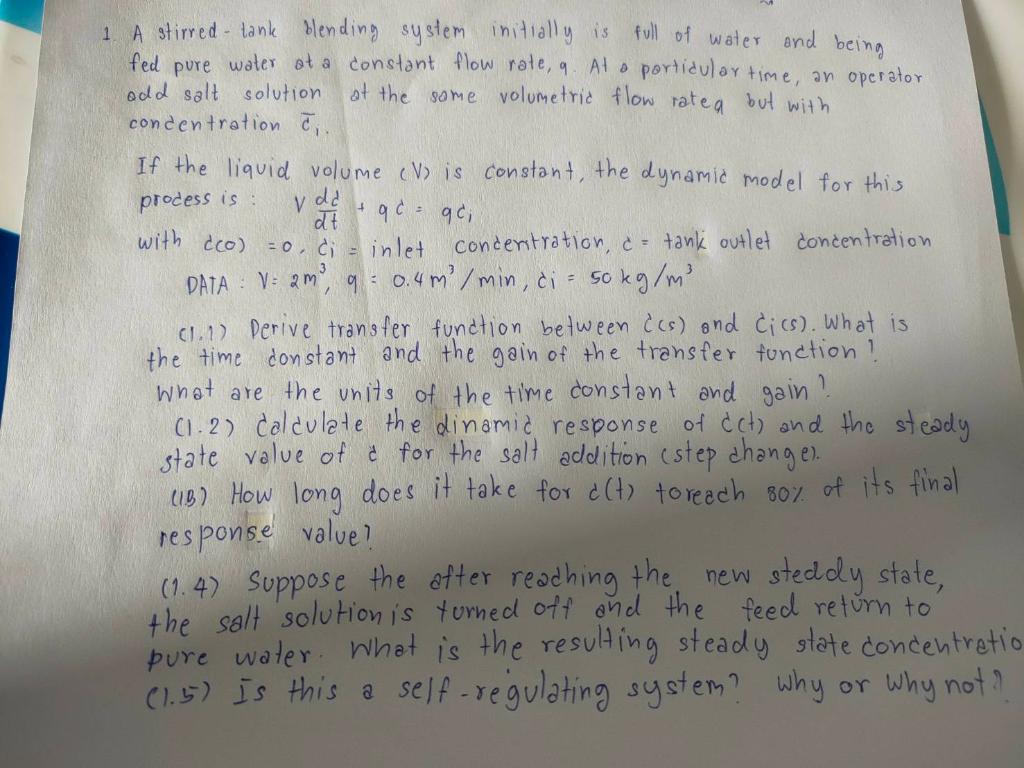 1. A stirred-tank blending system initially is full of water and being
fed pure water at a constant flow rate, q. At a particular time, an operator
add salt solution at the same volumetric flow rate q but with
concentration c̄i.
If the liquid volume (V) is constant, the dynamic model for this
process is : V dc/dt + qc = qci
with c(0) = 0, ci = inlet concentration, c = tank outlet concentration
DATA : V = 2m³, q = 0.4 m³/min, ci = 50 kg/m³
(1.1) Derive transfer function between c(s) and ci(s). What is
the time constant and the gain of the transfer function?
What are the units of the time constant and gain?
(1.2) Calculate the dinamic response of c(t) and the steady
state value of c for the salt addition (step change).
(1B) How long does it take for c(t) to reach 80% of its final
response value?
(1.4) Suppose the after reaching the new steddly state,
the salt solution is turned off and the feed return to
pure water. What is the resulting steady state concentratio
(1.5) Is this a self-regulating system? Why or why not?